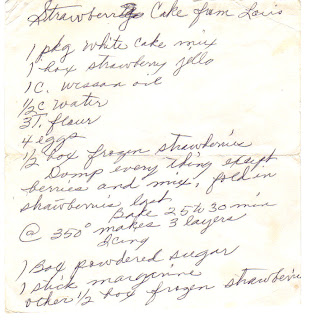 Strawberry Cake from Lois
1 pkg white cake mix
1 box strawberry jello
1 C. wesson oil
1/2 C water
3 T. flour
4 eggs
1/2 box frozen strawberries
Dump every thing except
berries and mix, fold in
strawberries last
Bake 25 to 30 min
@ 350° makes 3 layers
Icing
1 Box powdered sugar
1 stick margarine
other 1/2 box frozen strawberries